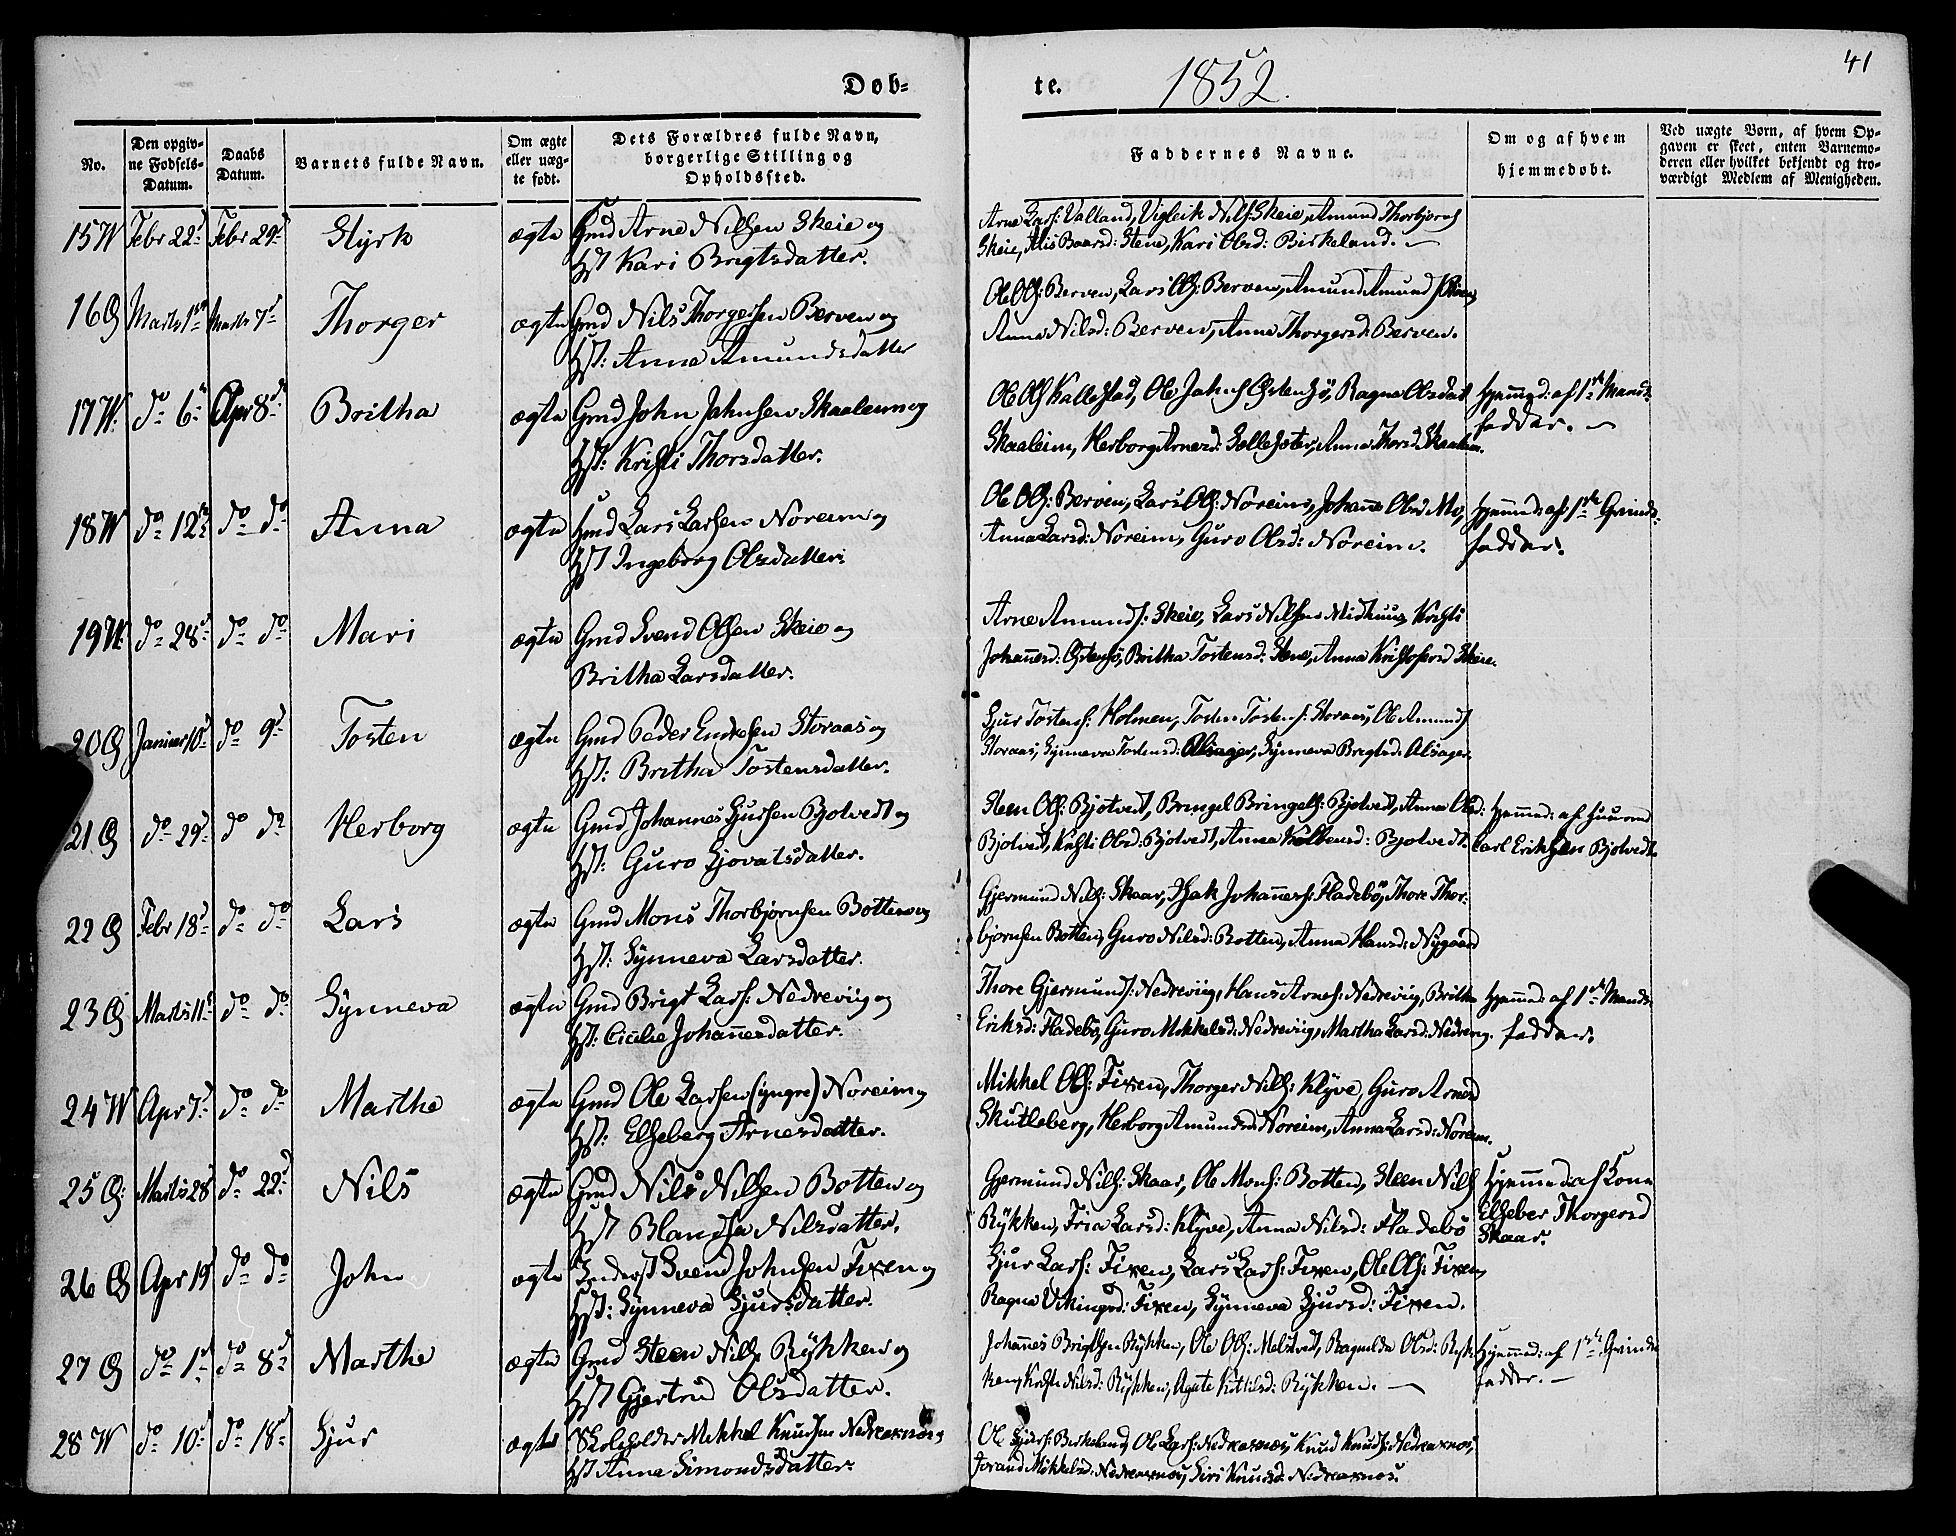 41
Døb-
te.
1852.
No.
Den opgiv-
ne Fødsels-
Datum.
Daabs
Datum.
Barnets fulde Navn.
Om ægte
eller uæg-
te født.
Dets Forældres fulde Navn,
borgerlige Stilling og
Opholdssted.
Faddernes Navne.
Om og af hvem
hjemmedøbt.
Ved uægte Børn, af hvem Op-
gaven er skeet, enten Barnemo-
deren eller hvilket bekjendt og tro-
værdigt Medlem af Menigheden.
15 W Febr 22d Febr 29d Styrk ægte Gmd Arne Nilssen Skeie og
Hst Kari Brigtsdatter.
Arne Lars: Valland, Vigleik Nils: Skeie, Amund Thorbjørns
Skeie, Baarsd: Stene, Kari Olsd: Birkeland.
16 Ø Marts 1ste Marts 7d Thorger ægte Gmd Nils Thorgersen Berven og
Hst: Anna Amundsdatter
Ole Ols: Berven, Lars Ols: Berven, Amund Amunds:
Anna Nilsd: Berven, Anna Thorgersd: Berven.
17 W. do 6te Apr 8de Britha ægte Gmd John Johnsen Skaaleim og
Hst: Kristi Thorsdatter.
Ole Ols Kallestad, Ole Johns Østensø, Ragna Olsdat
Skaaleim, Herborg Arnesd: Sollesæter, Anna Thorsd: Skaaleim.
Hjemmed: af 1ste Mands-
fadder.
18 W do 12te do do Anna ægte Hmd Lars Larsen Noreim og
Hst Ingeborg Olsdatter.
Ole Ols: Berven, Lars Ols: Noreim, Johanna Olsd Mo,
Anna Larsd: Noreim, Guro Olsd: Noreim.
Hjemmed: af 1ste Qvinde-
fadder.
19 W. do 28d do do Mari ægte Gmd Svend Olsen Skeie og
Britha Larsdatter.
Arne Amunds: Skeie, Lars Nilsen Midhuus, Kristi
Johannesd: Østensø, Britha Tostensd: Stene, Anna Kristofersd Skeie.
20 Ø Januar 10d do 9d Tosten ægte Gmd Peder Endresen Storaas og
Hst: Britha Tostensdatter.
Sjur Tostens: Holmen, Tosten Tostens: Storaas, Ole Amunds
Storaas, Synneva Tostensd: Alsager, Synneva Brigtsd: Alsager.
21 Ø do 29d do do Herborg ægte Gmd Johannes Sjursen Bjotvedt og
Hst: Guro Sjovatsdatter.
Steen Ols: Bjotvedt, Bringel Bringels: Bjotvedt, Anna Olsd:
Bjotvedt, Kristi Olsd: Bjotvedt, Anna Kolbensd: Bjotvedt.
Hjemmed: af Huusmd
Carl Eriksen Bjotvedt.
22 Ø Febr 18d do do Lars ægte Gmd Mons Thorbjørnsen Botten og
Hst: Synneva Larsdatter.
Gjermund Nils: Skaar, Isak Johannes: Fladebø, Thore Thor-
bjørnsen Botten, Guro Nilsd: Botten, Anna Hansd: Nygaard
23 Ø Marts 11te do do Synneva ægte Gmd Brigt Lars: Nedreviig og
Hst: Cicilie Johannesdatter.
Thore Gjermunds: Nedreviig, Hans Arnes: Nedreviig, Britha
Eriksd: Fladebø, Guro Mikkelsd: Nedreviig, Martha Larsd: Nedreviig.
Hjemmed af 1ste Mands-
fadder.
24 W Apr 7d do do Marthe ægte Gmd Ole Larsen (yngre) Noreim og
Hst: Elseberg Arnesdatter.
Mikkel Ols: Fixen, Thorger Nils: Klyve, Guro Arnesd
Skutleberg, Herborg Amundsd Noreim, Anna Larsd: Noreim.
25 Ø: Marts 28 do 22d Nils ægte Gmd Nils Nilssen Botten og
Hst Blansa Nilsdatter.
Gjermund Nils: Skaar, Ole Mons: Botten, Steen Nils
Rykken, Fria Larsd: Klyve, Anna Nilsd: Fladebø
Hjemmed: af Kone
Elseber Thorgersd
Skaar.
26 Ø Apr 19 do do John ægte Inderst Svend Johnsen Fixen og
Hst: Synneva Sjursdatter.
Sjur Lars: Fixen, Lars Lars: Fixen, Ole Ols: Fixen,
Ragna Vikingsd: Fixen, Synneva Sjursd: Fixen.
27 Ø do 1d do 8d Marthe ægte Gmd Steen Nils. Rykken og
Hst Gjertrud Olsdatter.
Johannes Brigtsen Rykken, Ole Ols: Melstved, Ragnilda Olsd: Ryk-
ken, Kristi Nilsd: Rykken, Agate Kittilsd: Rykken.
Hjemmed: af 1ste Qvinde
fadder.
28 W do 10d do 18d Sjur ægte Skoleholder Mikkel Knudsen Nedreaxnes og
Hst Anna Simonsdatter.
Ole Sjurs: Birkeland, Ole Lars: Nedreaxnes, Knud Knuds: Nedreaxnes,
Jorand Mikkelsd: Nedreaxnes, Siri Knudsd: Nedreaxnes.